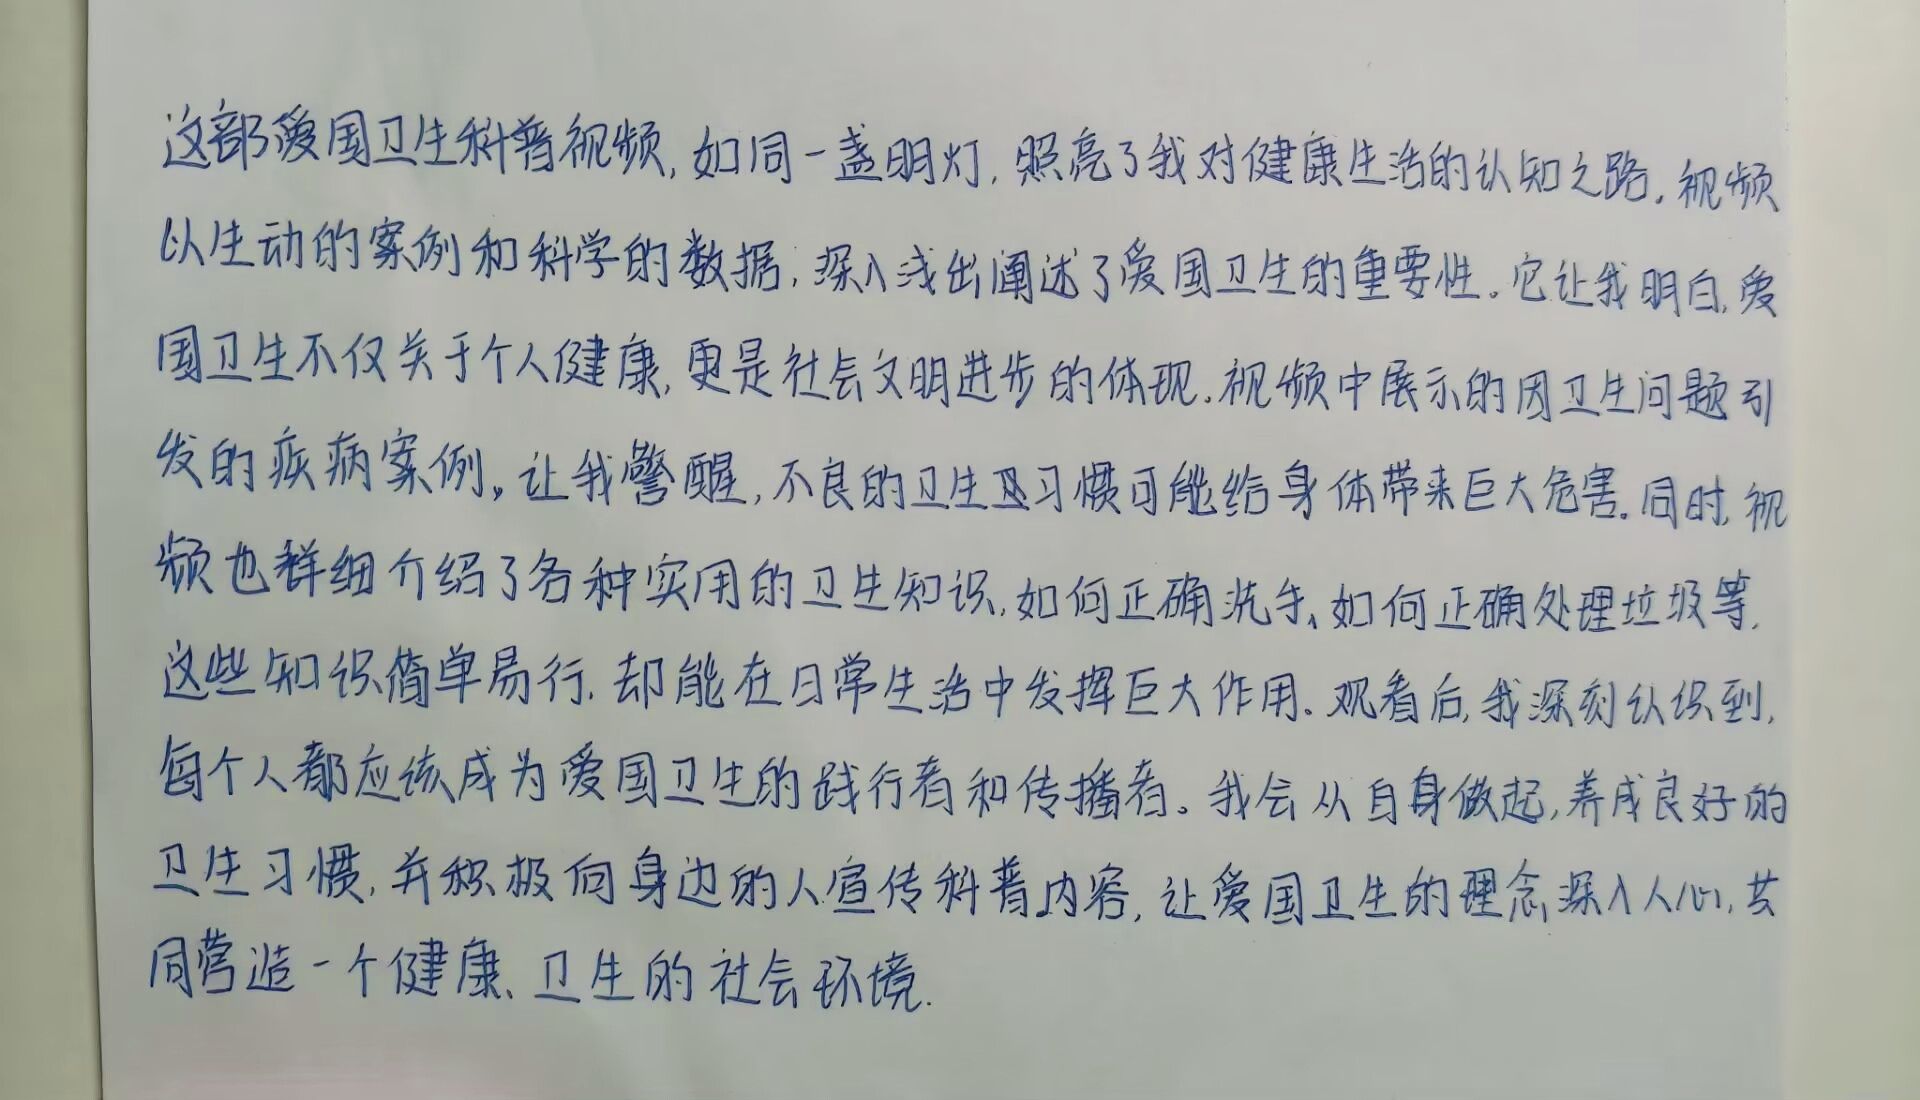 这部爱国卫生科普视频，如同一盏明灯，照亮了我对健康生活的认知之路。视频
以生动的案例和科学的数据，深入浅出阐述了爱国卫生的重要性。它让我明白，爱
国卫生不仅关于个人健康，更是社会文明进步的体现。视频中展示的因卫生问题引
发的疾病案例。让我警醒，不良的卫生习惯可能给身体带来巨大危害。同时，视
频也详细介绍了各种实用的卫生知识，如何正确洗手、如何正确处理垃圾等，
这些知识简单易行，却能在日常生活中发挥巨大作用。观看后，我深刻认识到，
每个人都应该成为爱国卫生的践行者和传播者。我会从自身做起，养成良好的
卫生习惯，并积极向身边的人宣传科普内容，让爱国卫生的理念深入人心，共
同营造一个健康、卫生的社会环境.